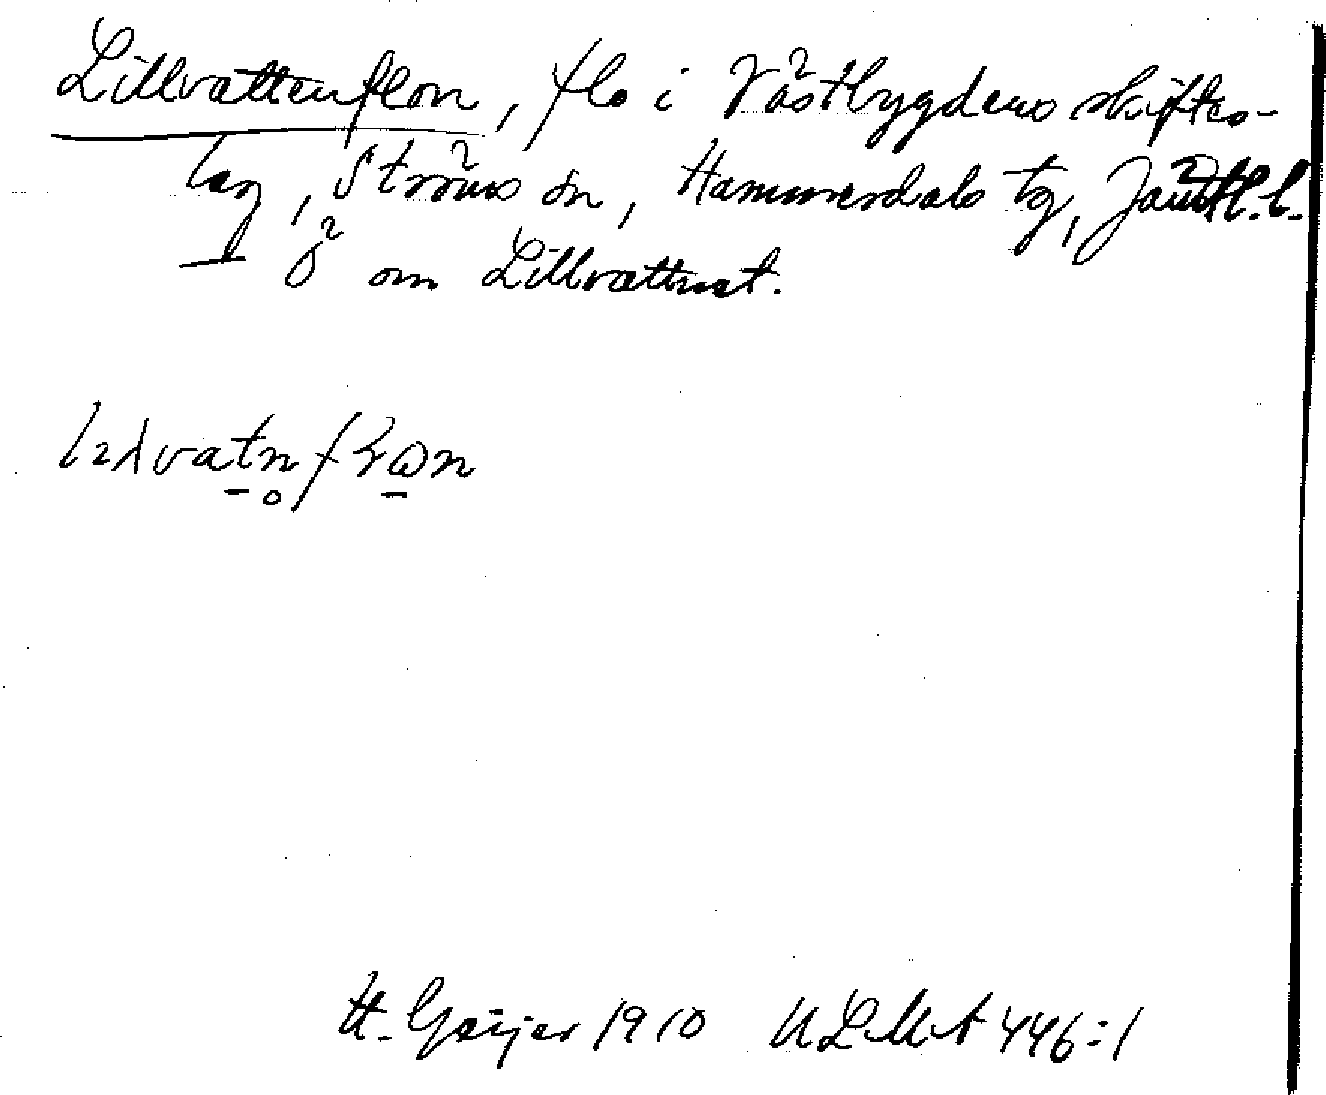 Lillvattenflon, flo i Västbygdens skiftes-
lag, Ströms sn, Hammerdals tg, Jämtl. l.
— Ö om Lillvattnet.
H. Geijer 1910 ULMA 446:1